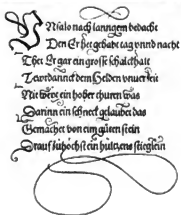 Unfalo nach lanngem bedacht
Den Er het gehabt tag vnnd nacht
Thet Er gar ein grosse schalckhait
Tewrdannck dem Helden vnuerseit
Nit weyt ein hoher thuren was
Darinn ein schneck gelaubet das
Gemachet von eim güten stein
Drauf sich hoch ein hultzens stieglein